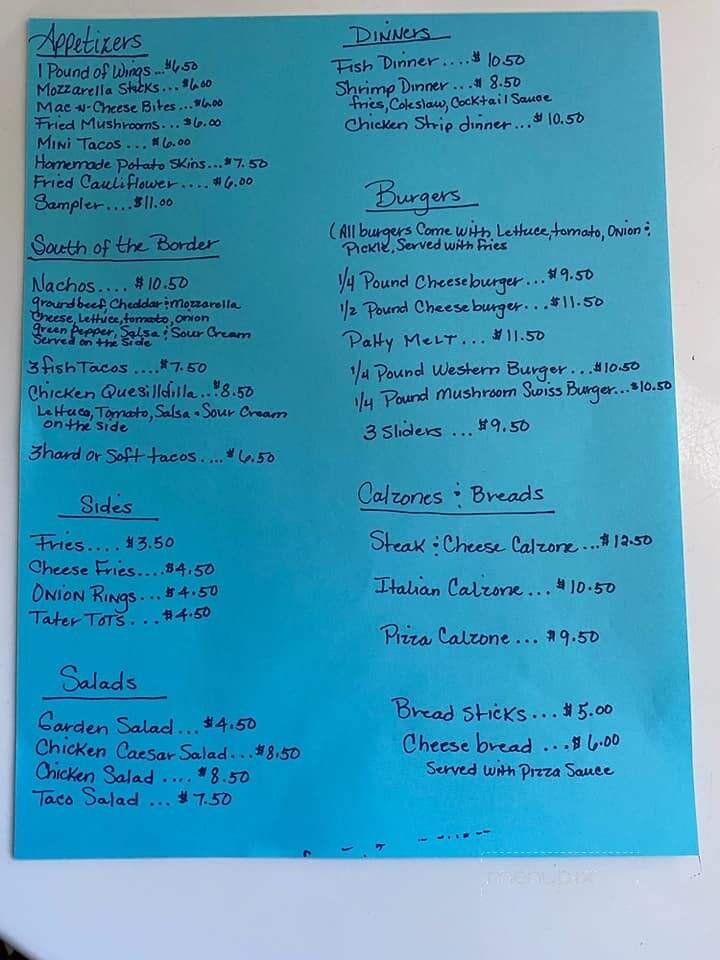 Appetizers
1 Pound of Wings...$6.50
Mozzarella Sticks...$6.00
Mac-N-Cheese Bites...$6.00
Fried Mushrooms...$6.00
Mini Tacos...$6.00
Homemade Potato Skins...$7.50
Fried Cauliflower....$6.00
Sampler....$11.00
South of the Border
Nachos....$10.50
ground beef, Cheddar & Mozzarella
Cheese, Lettuce, tomato, onion
green Pepper, Salsa & Sour Cream
Served on the Side
3 fish Tacos....$7.50
Chicken Quesilldilla...$8.50
Lettuce, Tomato, Salsa & Sour Cream
on the side
3 hard or Soft tacos....$6.50
Sides
Fries....$3.50
Cheese Fries....$4.50
Onion Rings...$4.50
Tater Tots...$4.50
Salads
Garden Salad...$4.50
Chicken Caesar Salad...$8.50
Chicken Salad....$8.50
Taco Salad...$7.50
Dinners
Fish Dinner....$10.50
Shrimp Dinner...$8.50
fries, Coleslaw, Cocktail Sauce
Chicken Strip dinner...$10.50
Burgers
(All burgers Come with Lettuce, tomato, Onion &
Pickle, Served with Fries
1/4 Pound Cheeseburger...$9.50
1/2 Pound Cheeseburger...$11.50
Patty Melt...$11.50
1/4 Pound Western Burger...$10.50
1/4 Pound Mushroom Swiss Burger...$10.50
3 Sliders...$9.50
Calzones & Breads
Steak & Cheese Calzone...$12.50
Italian Calzone...$10.50
Pizza Calzone...$9.50
Bread Sticks...$5.00
Cheese bread...$6.00
Served with Pizza Sauce
menupix